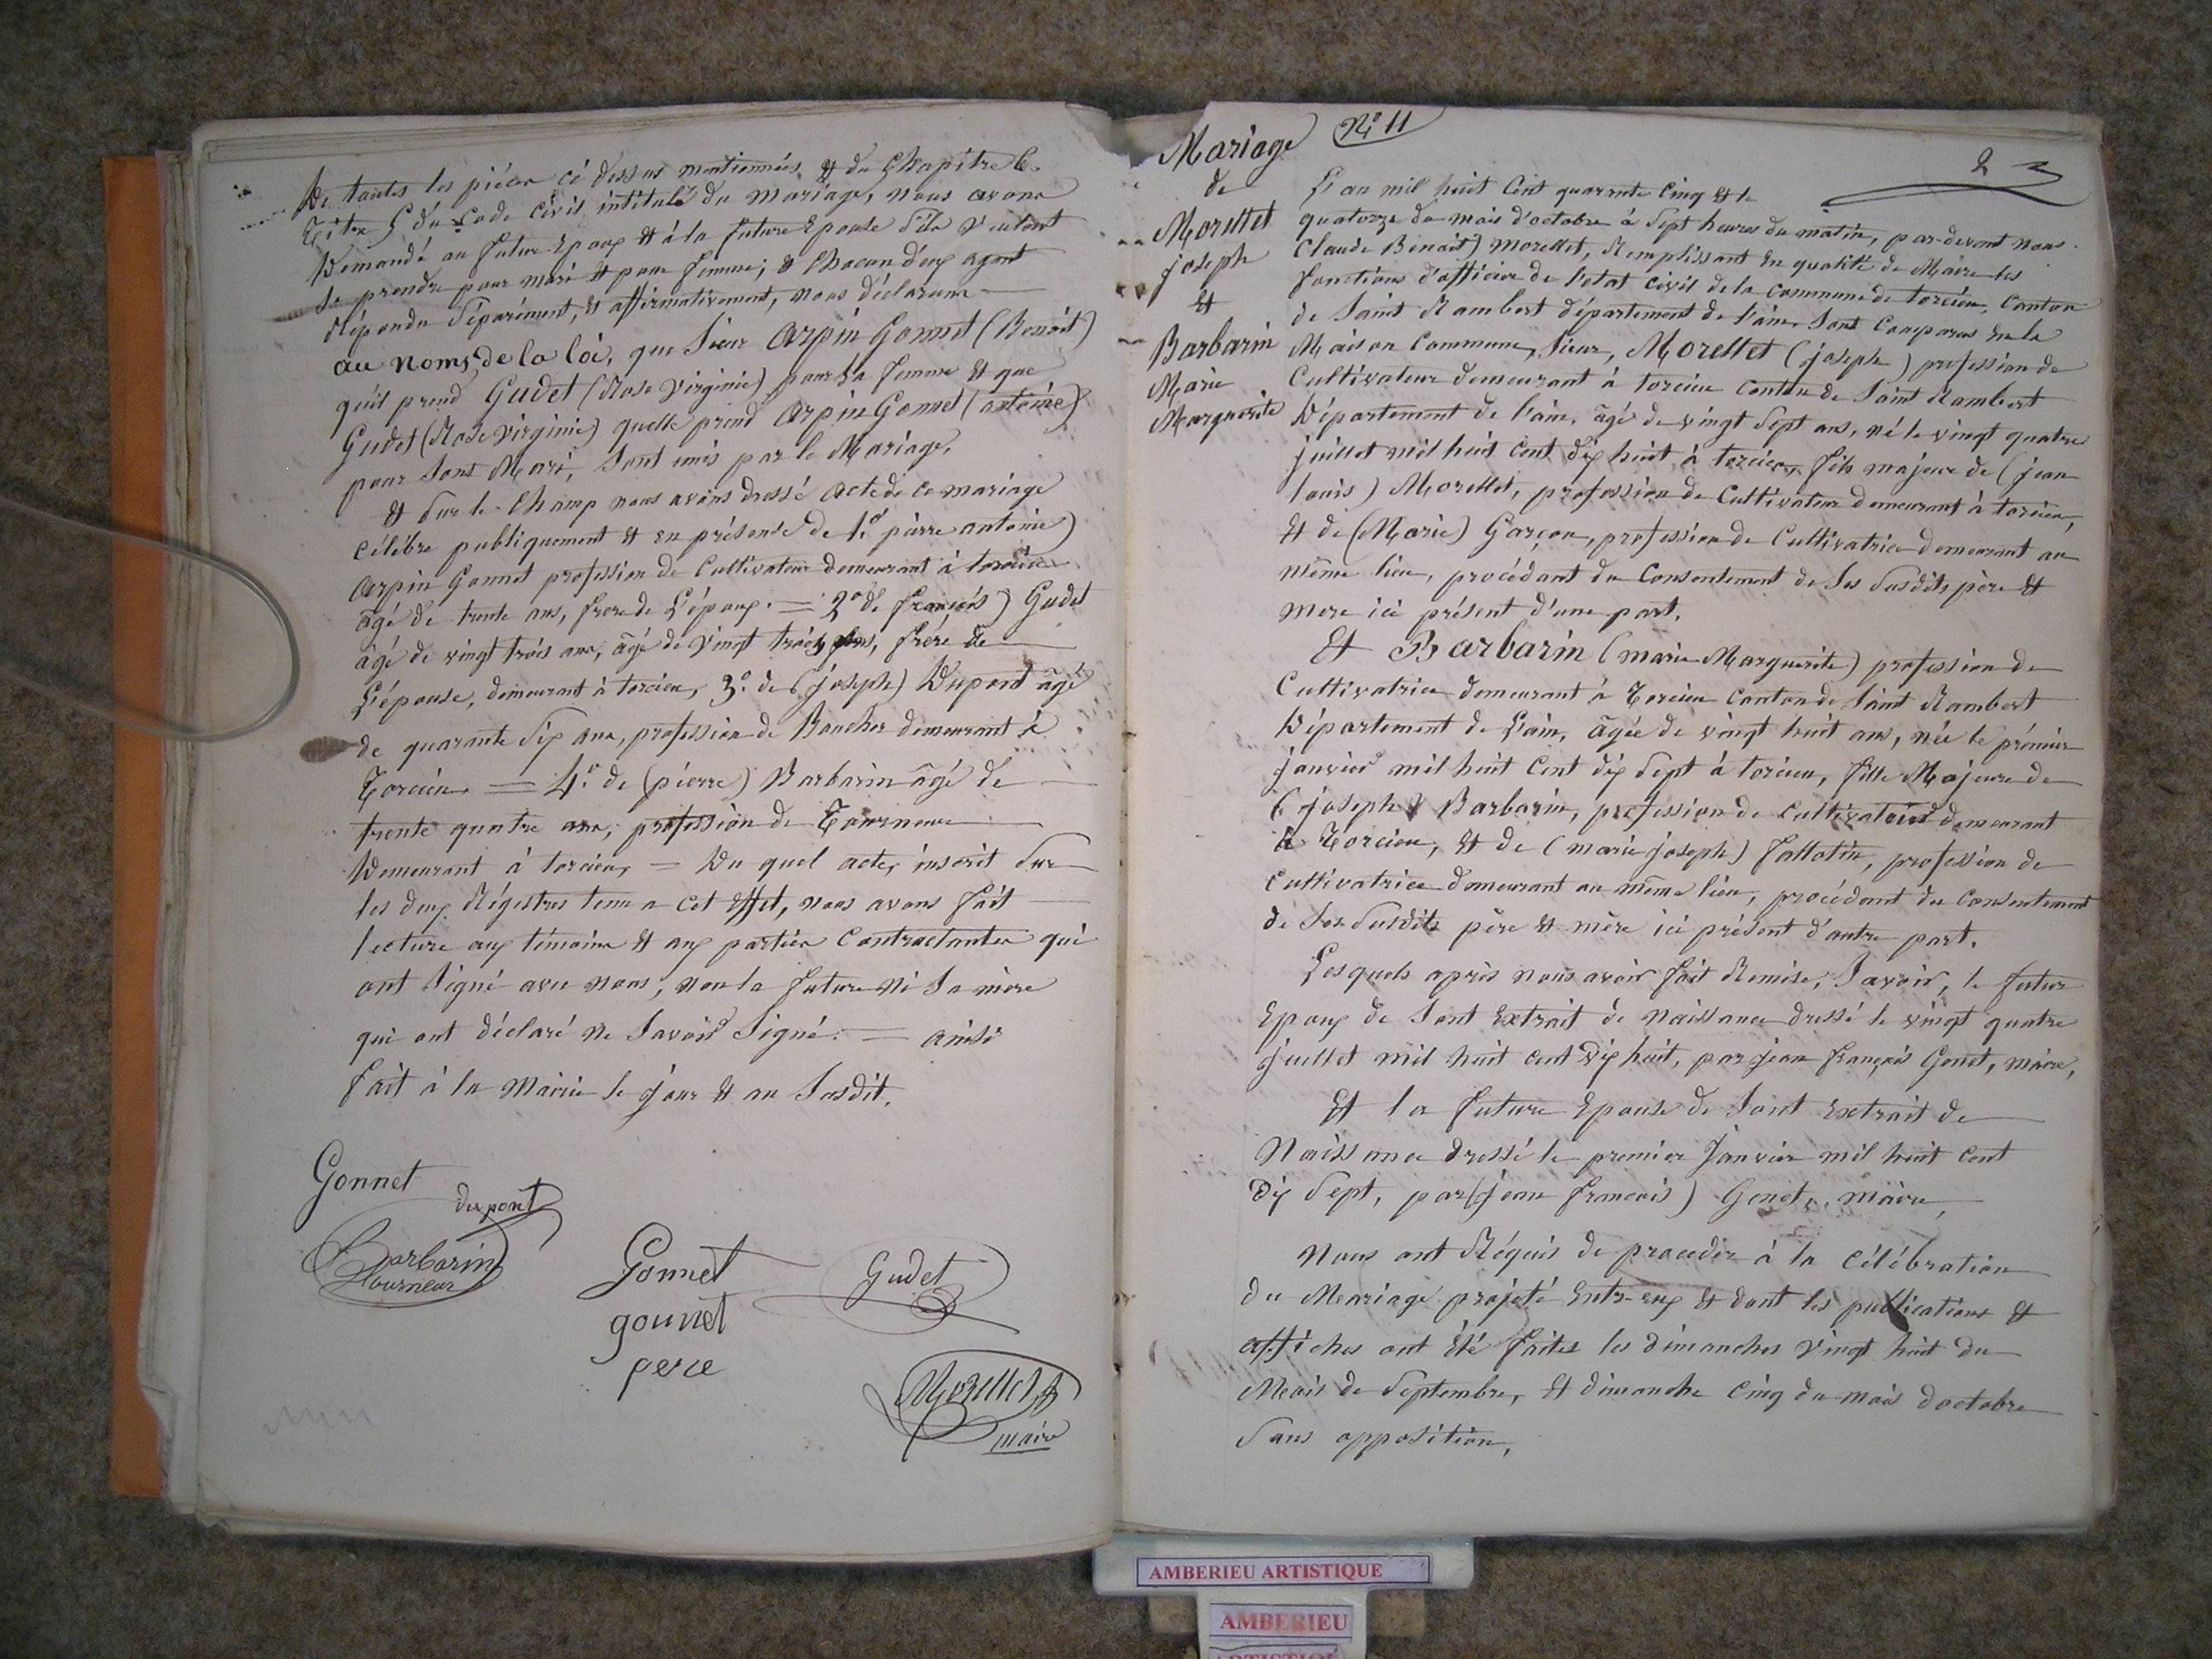 De toutes les pièces ci dessus mentionnées, & du Chapitre 6.
Titre 5 du Code civil intitulé du mariage, nous avons
Demandé au futur Epoux & à la future Epouse s'ils veulent
se prendre pour mari & pour femme; & chacun d'eux ayant
répondu séparément, & affirmativement, nous déclarons
au noms de la loi, que Sieur Arpin Gonnet (Benoit)
qu'il prend Gudet (Rose Virginie) pour sa femme & que
Gudet (Rose Virginie) quelle prend Arpin Gonnet (antoine)
pour sont Mari, sont unis par le Mariage.
& sur le champ nous avons dressé acte de ce mariage
célébre publiquement & en présence de 1.° pierre antoine)
Arpin Gonnet profession de Cultivateur demeurant à torcieu
âgé de trente ans, frere de l'époux. = 2° de françois) Gudet
âgé de vingt trois ans, âgé de vingt trois ans, frère de
L'épouse, demeurant à torcieu, 3.° de (joseph) Dupont âgé
de quarante six ans, profession de Boucher demeurant à
Torcieu. = 4.° de (pierre) Barbarin âgé de
trente quatre ans, profession de Tourneur
Demeurant à torcieu, = Du quel acte, inscrit sur
les deux Régistres tenu a cet Effet, nous avons fait
lecture aux témoins & aux parties Contractantes qui
ont signé avec nous, non la future ni sa mère
qui ont déclaré ne savoir signé. = ainsi
fait à la Mairie le jour & an susdit.
Gonnet
dupont
Barbarin
tourneur
Gonnet
gonnet
pere
Gudet
Morellet
maire
Mariage N° 11
de
Morellet
joseph
&
Barbarin
Marie
Marguerite
2
L'an mil huit Cent quarante Cinq & le
quatorze du mois d'octobre à sept heures du matin, par-devant nous
Claude Benoit) Morellet, Remplissant en qualité de Maire les
fonctions d'officier de l'etat civil de la Commune de torcieu, Canton
de Saint Rambert département de l'ain, sont Comparus en la
Maison Commune, Sieur, Morellet (joseph) profession de
Cultivateur demeurant à torcieu Canton de Saint Rambert
Département de l'ain, âgé de vingt sept ans, né le vingt quatre
juillet mil huit cent dix huit à torcieu, fils majeur de (jean
louis) Morellet, profession de Cultivateur demeurant à torcieu,
& de (Marie) Garçon, profession de Cultivatrice demeurant au
même lieu, procédant du Consentement de ses susdits père &
mere ici présent d'une part.
Et Barbarin (marie Marguerite) profession de
Cultivatrice demeurant à Torcieu Canton de Saint Rambert
Département de L'ain, âgée de vingt huit ans, née le prémier
janvier mil huit Cent dix sept à torcieu, fille Majeure de
(joseph) Barbarin, profession de Cultivateur demeurant
à Torcieu, & de (marie joseph) Jallatin, profession de
Cultivatrice demeurant au même lieu, procédant du Consentement
de Ses susdits père & mère ici présent d'autre part.
Lesquels après nous avoir fait Remise, Savoir, le futur
Epoux de Sont Extrait de Naissance dressé le vingt quatre
juillet mil huit cent dix huit, par jean françois Gonet, maire,
Et la future Epouse de Sont Extrait de
Naissance dressé le premier Janvier mil huit Cent
dix sept, par (jean francois) Gonet, maire,
Nous ont Réquis de proceder à la Célébration
du Mariage projeté Entr-eux & dont les publications &
affiches ont été faites les dimanches vingt huit du
Mois de Septembre, & dimanche Cinq du mois d'octobre
Sans opposition,
AMBERIEU ARTISTIQUE
AMBERIEU
ARTISTIQUE